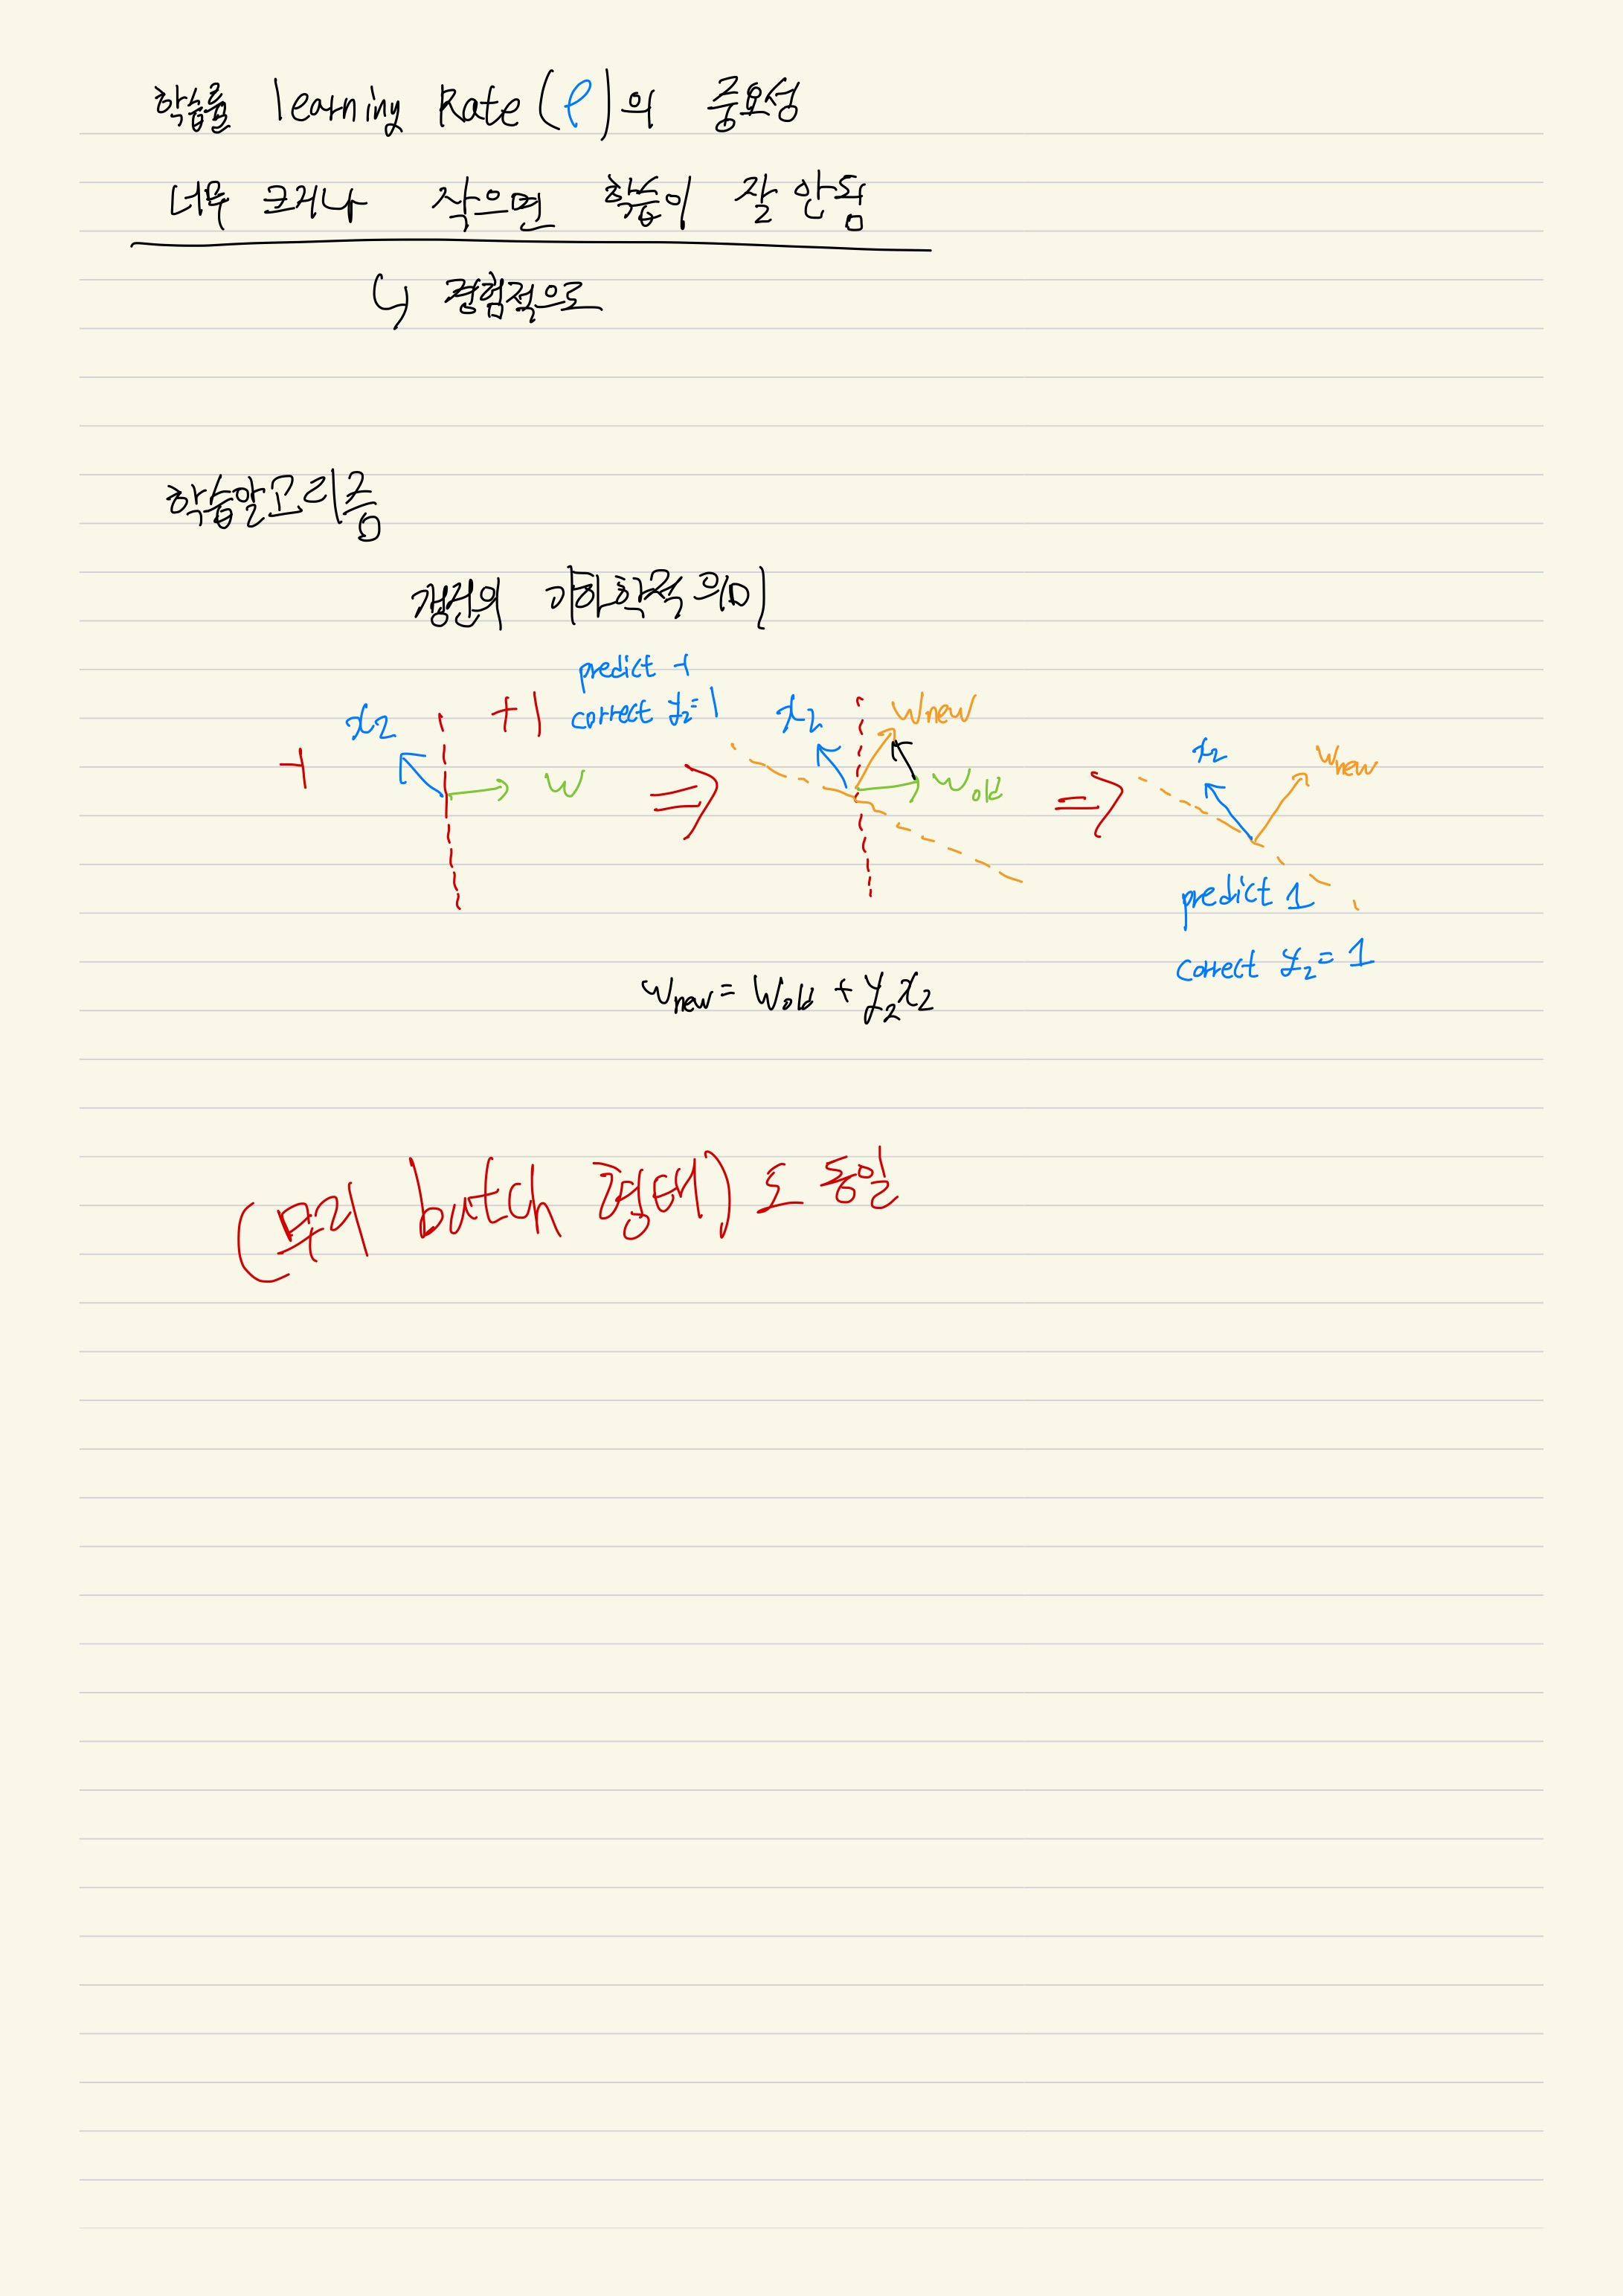 학습률 learning Rate(ρ)의 중요성
너무 크거나 작으면 학습이 잘 안됨
↳ 경험적으로
학습알고리즘
갱신의 기하학적 의미
predict -1
correct y₂=1
-1 x₂ +1 w
⇒
x₂ Wnew Wold
⇒
x₂ Wnew
predict 1
correct y₂ = 1
Wnew = Wold + y₂x₂
(무리 batch 형태)도 동일